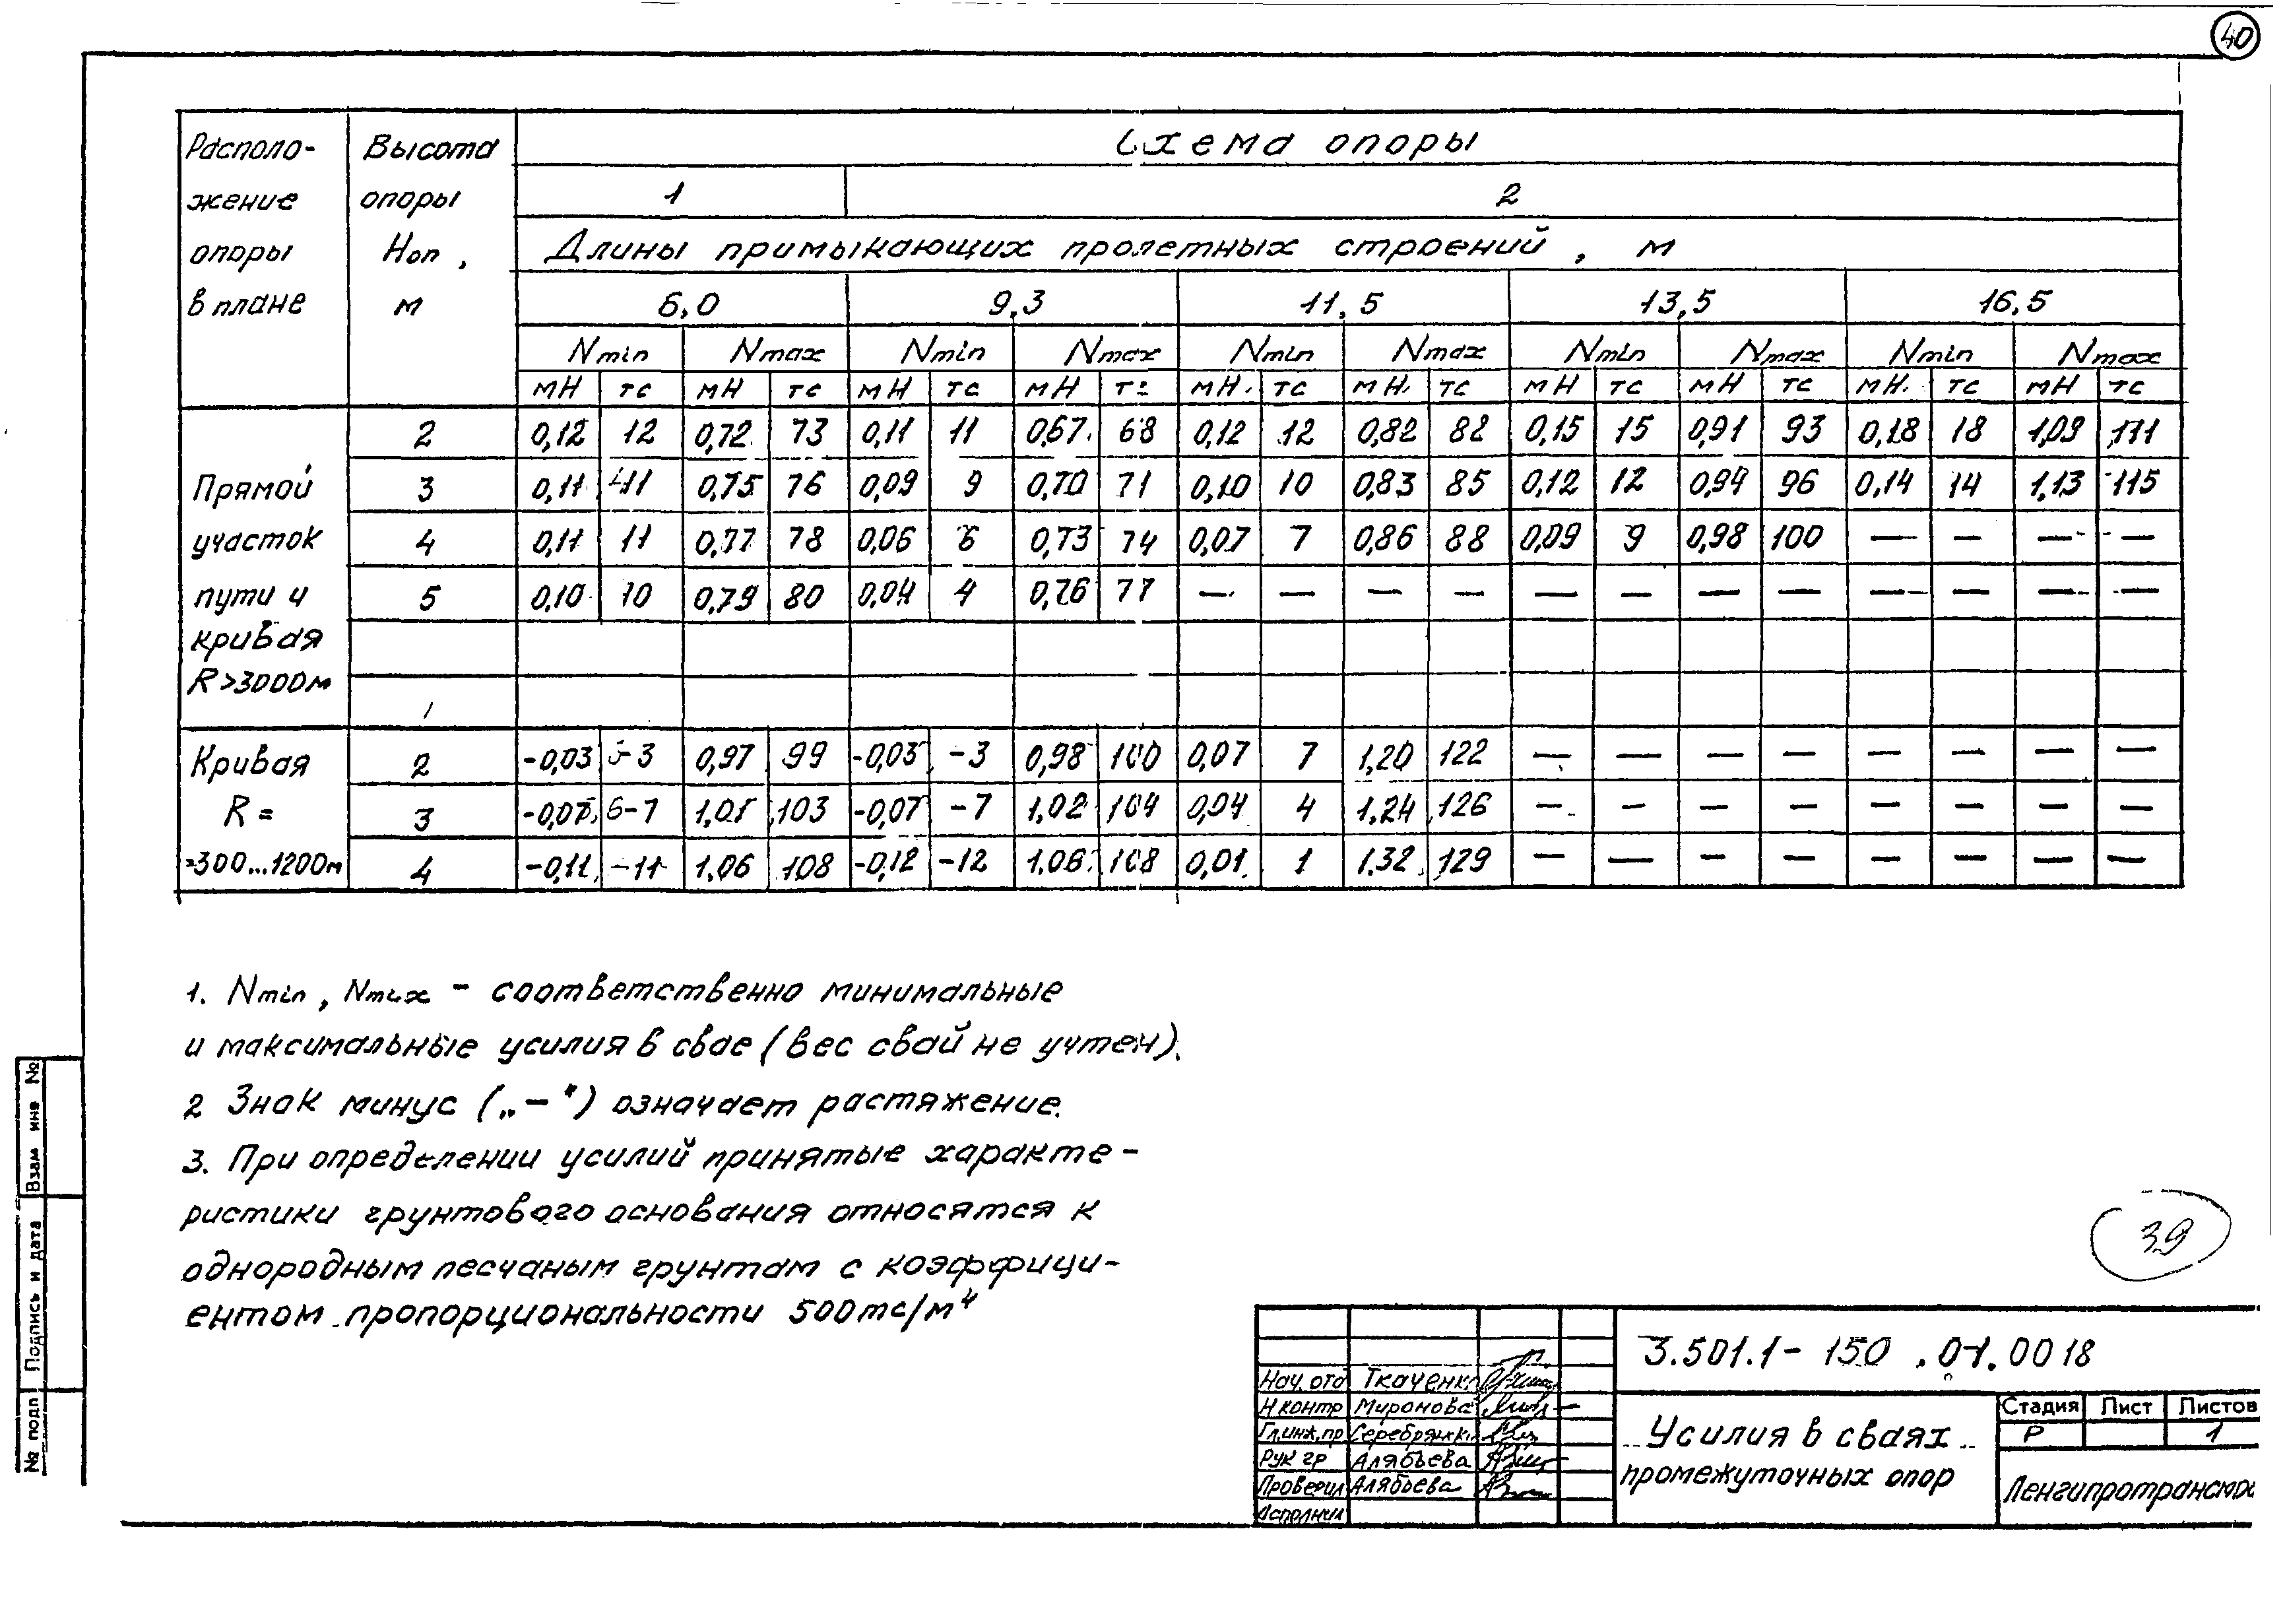 40
Располо-
жение
опоры
в плане
Высота
опоры
Ноп,
м
Схема опоры
1 2
Длины примыкающих пролетных строений, м
6,0 9,3 11,5 13,5 16,5
Nmin Nmax Nmin Nmax Nmin Nmax Nmin Nmax Nmin Nmax
мН тс мН тс мН тс мН тс мН тс мН тс мН тс мН тс мН тс мН тс
Прямой
участок
пути и
кривая
R>3000м
2 0,12 12 0,72 73 0,11 11 0,67 68 0,12 12 0,82 82 0,15 15 0,91 93 0,18 18 1,09 111
3 0,11 11 0,75 76 0,09 9 0,70 71 0,10 10 0,83 85 0,12 12 0,94 96 0,14 14 1,13 115
4 0,11 11 0,77 78 0,06 6 0,73 74 0,07 7 0,86 88 0,09 9 0,98 100 — — — —
5 0,10 10 0,79 80 0,04 4 0,76 77 — — — — — — — — — — — —
Кривая
R =
=300...1200м
2 -0,03 -3 0,97 99 -0,03 -3 0,98 100 0,07 7 1,20 122 — — — — — — — —
3 -0,07 -7 1,01 103 -0,07 -7 1,02 104 0,04 4 1,24 126 — — — — — — — —
4 -0,11 -11 1,06 108 -0,12 -12 1,06 108 0,01 1 1,32 129 — — — — — — — —
1. Nmin, Nmax - соответственно минимальные
и максимальные усилия в свае (вес свай не учтен).
2 Знак минус („-") означает растяжение.
3. При определении усилий принятые характе-
ристики грунтового основания относятся к
однородным песчаным грунтам с коэффици-
ентом пропорциональности 500тс/м⁴
39
Взам инв №
Подпись и дата
№ подп
Нач. отд Ткаченко
Н контр Миронова
Гл.инж.пр Серебрянск
Рук гр Алябьева
Проверил Алябьева
Исполнил
3.501.1-150.01.0018
Усилия в сваях
промежуточных опор
Стадия Лист Листов
Р 1
Ленгипротрансмос